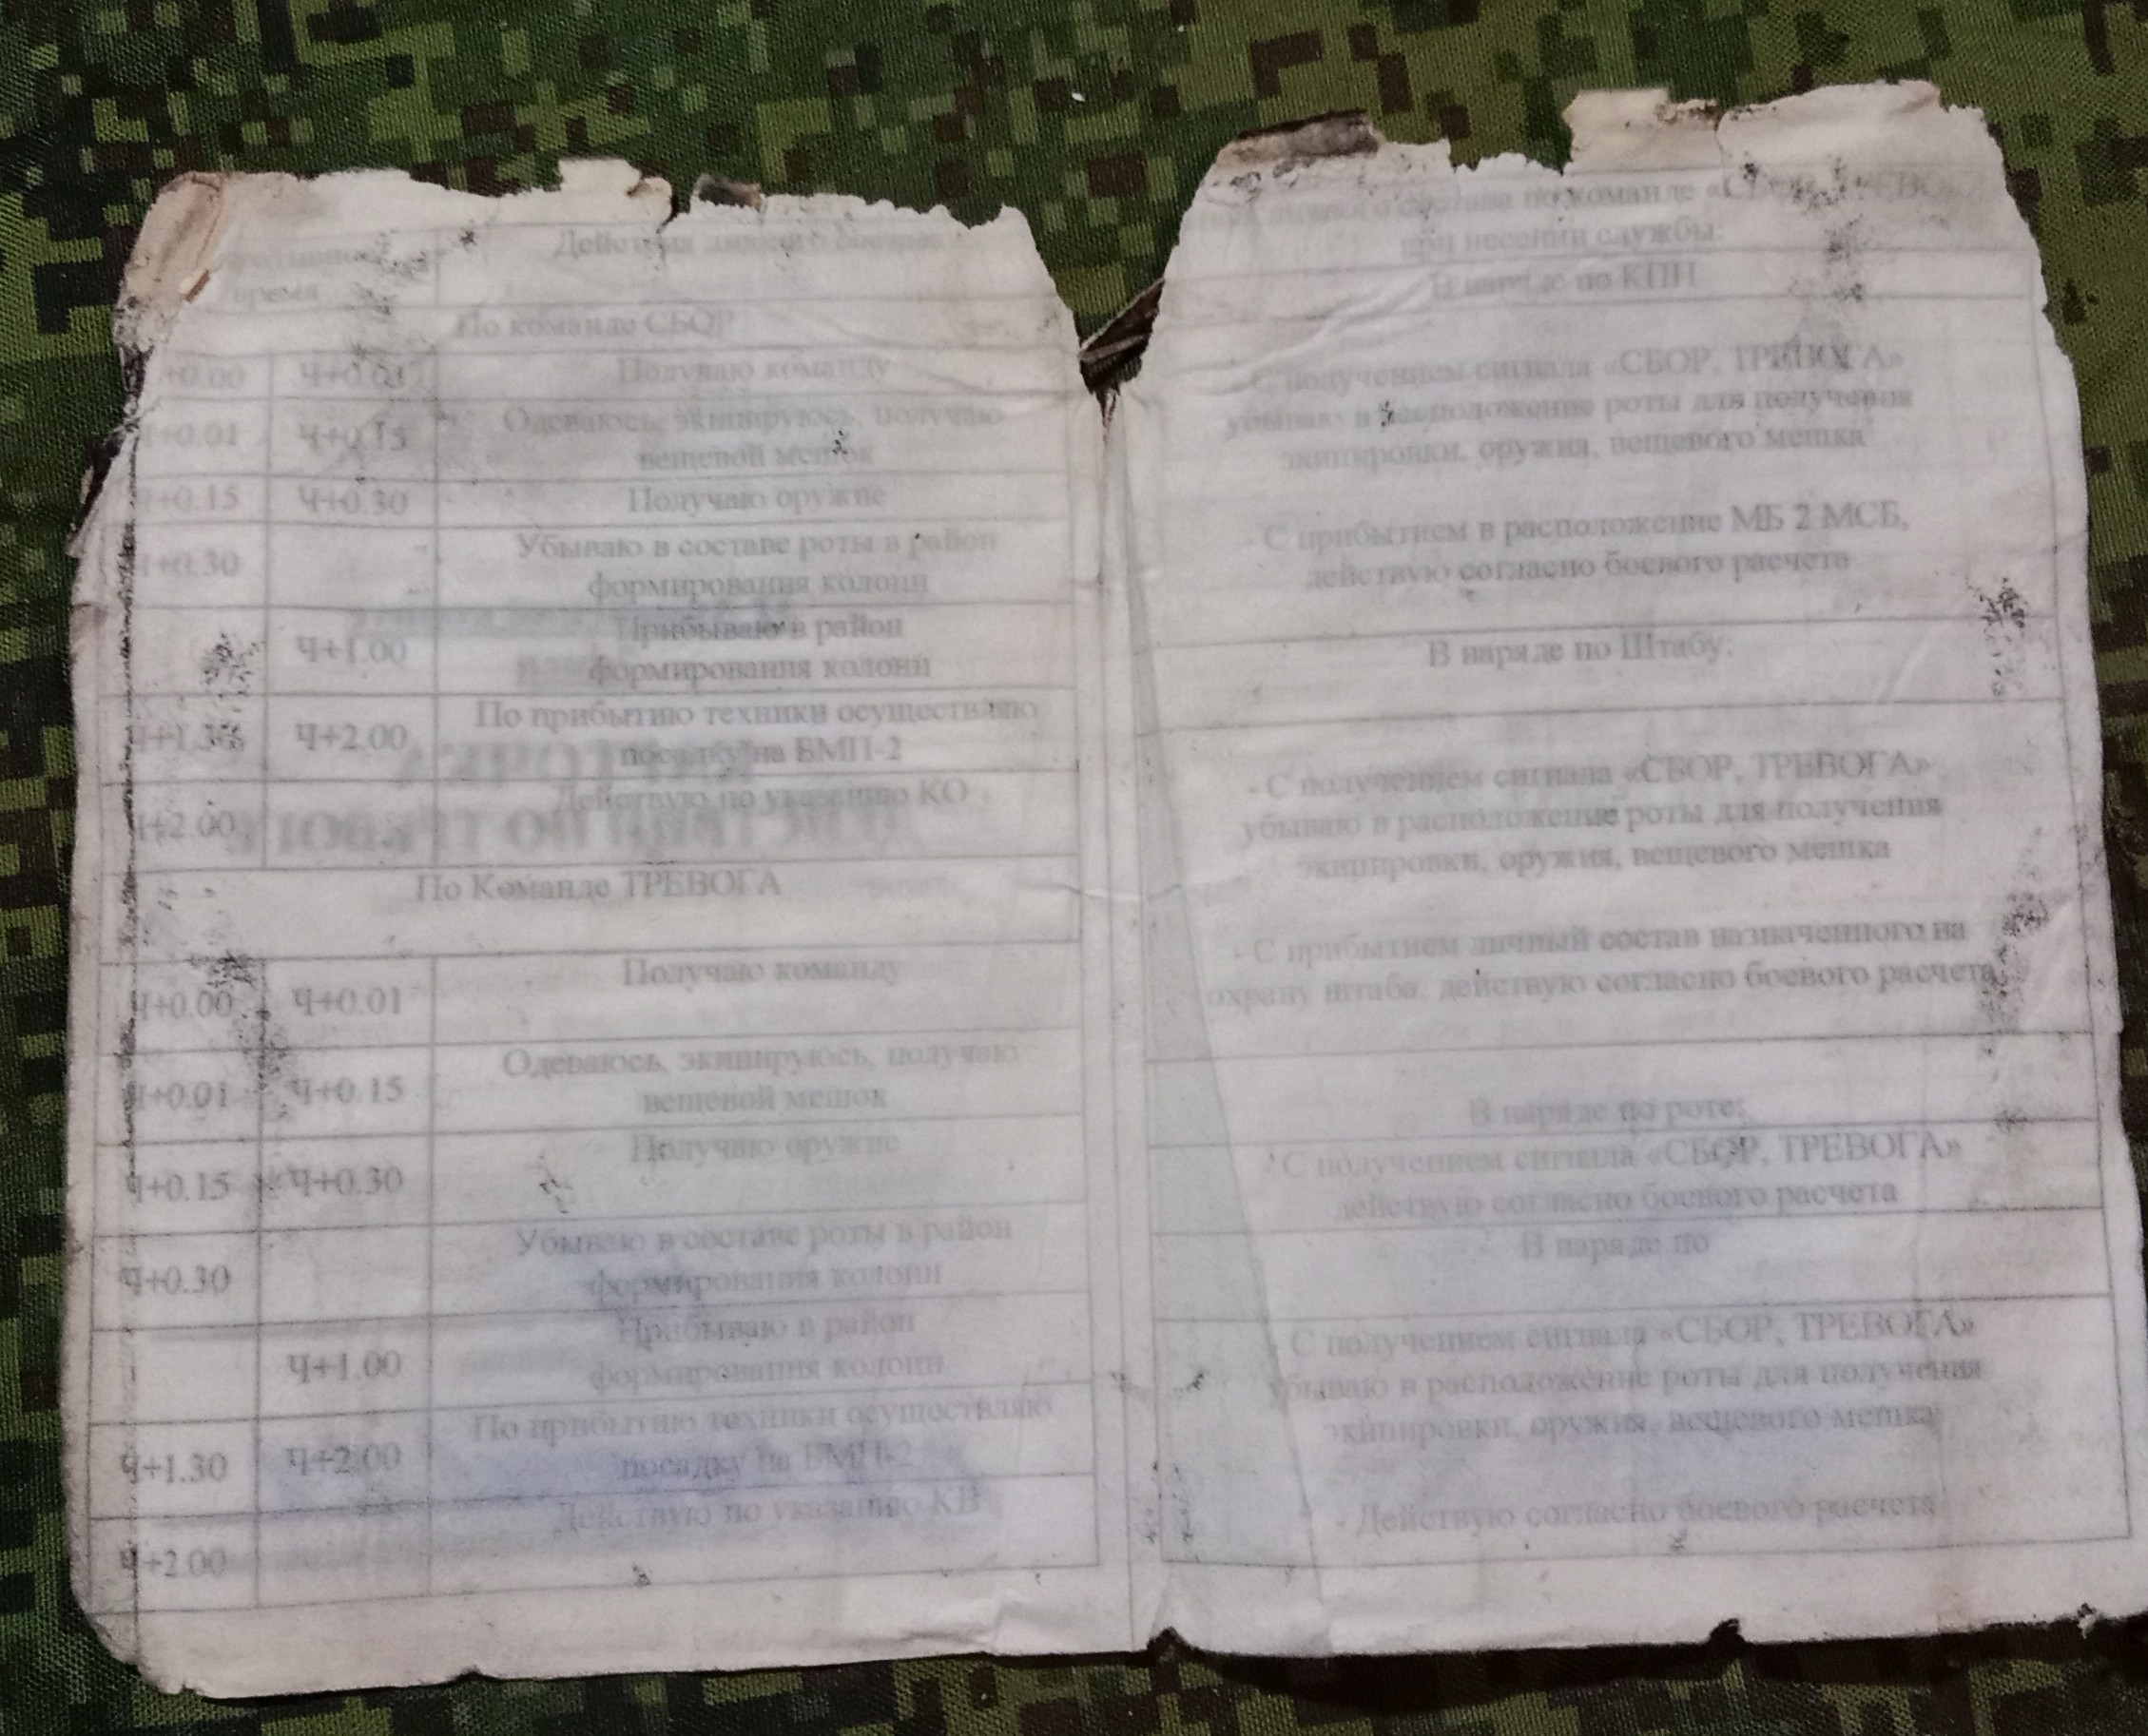 Действия личного состава
время
По команде СБОР
+0.00 Ч+0.01 Получаю команду
Ч+0.01 Ч+0.15 Одеваюсь, экипируюсь, получаю
вещевой мешок
Ч+0.15 Ч+0.30 Получаю оружие
Ч+0.30 Убываю в составе роты в район
формирования колонн
Ч+1.00 Прибываю в район
формирования колонн
Ч+1.30 Ч+2.00 По прибытию техники осуществляю
посадку на БМП-2
Ч+2.00 Действую по указанию КО
По Команде ТРЕВОГА
Ч+0.00 Ч+0.01 Получаю команду
Ч+0.01 Ч+0.15 Одеваюсь, экипируюсь, получаю
вещевой мешок
Ч+0.15 Ч+0.30 Получаю оружие
Ч+0.30 Убываю в составе роты в район
формирования колонн
Ч+1.00 Прибываю в район
формирования колонн
Ч+1.30 Ч+2.00 По прибытию техники осуществляю
посадку на БМП-2
Ч+2.00 Действую по указанию КВ
личного состава по команде «СБОР, ТРЕВОГА»
при несении службы:
В наряде по КПП
- С получением сигнала «СБОР, ТРЕВОГА»
убываю в расположение роты для получения
экипировки, оружия, вещевого мешка
- С прибытием в расположение МБ 2 МСБ,
действую согласно боевого расчета
В наряде по Штабу:
- С получением сигнала «СБОР, ТРЕВОГА»
убываю в расположение роты для получения
экипировки, оружия, вещевого мешка
- С прибытием личный состав назначенного на
охрану штаба, действую согласно боевого расчета
В наряде по роте:
- С получением сигнала «СБОР, ТРЕВОГА»
действую согласно боевого расчета
В наряде по
- С получением сигнала «СБОР, ТРЕВОГА»
убываю в расположение роты для получения
экипировки, оружия, вещевого мешка
- Действую согласно боевого расчета